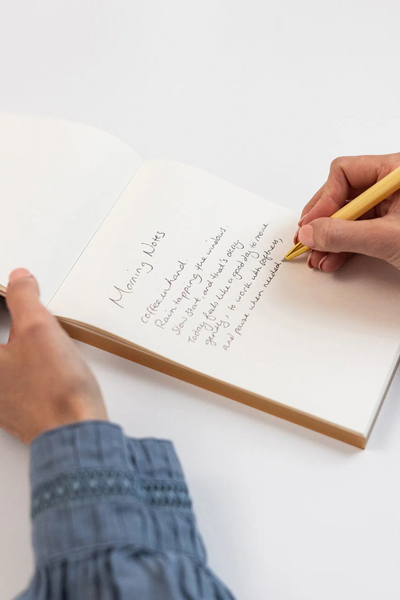 Morning Notes
coffee in hand.
Rain tapping the windows
Slow start, and that's okay.
Today feels like a good day to move
gently, to work with softness,
and pause when needed.